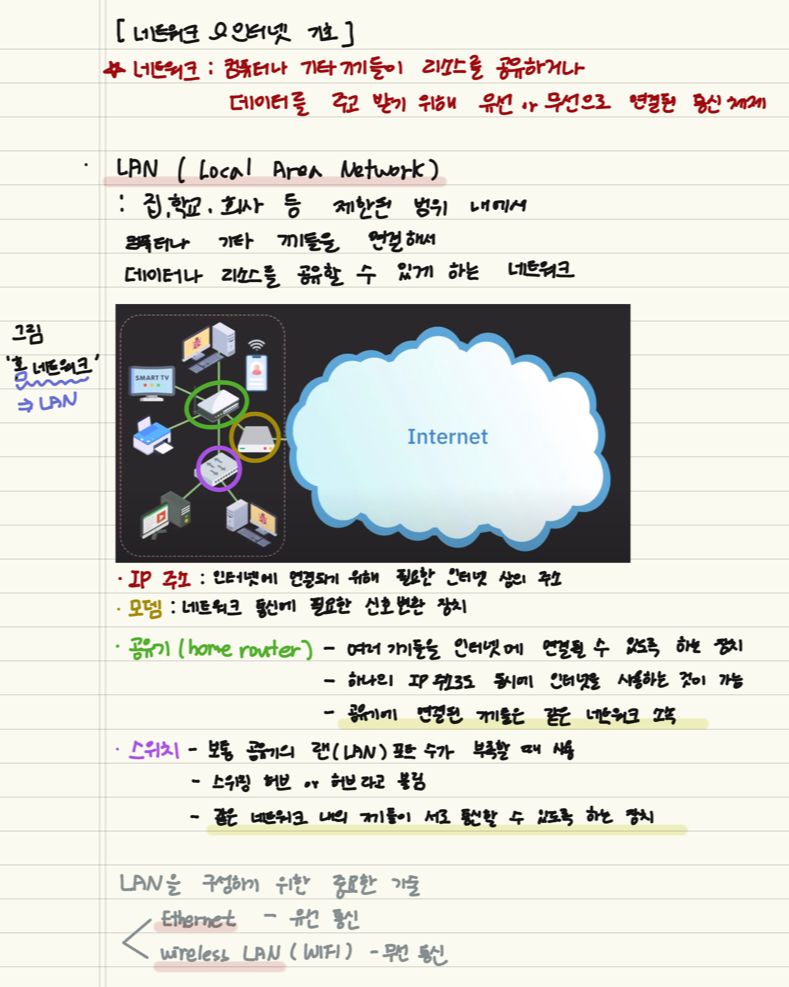 [ 네트워크 & 인터넷 기초 ]
☆ 네트워크 : 컴퓨터나 기타 기기들이 리소스를 공유하거나
데이터를 주고 받기 위해 유선 or 무선으로 연결된 통신 체계
· LAN ( Local Area Network )
: 집, 학교, 회사 등 제한된 범위 내에서
컴퓨터나 기타 기기들을 연결해서
데이터나 리소스를 공유할 수 있게 하는 네트워크
그림
'홈 네트워크'
⇒ LAN
SMART TV
Internet
· IP 주소 : 인터넷에 연결되기 위해 필요한 인터넷 상의 주소
· 모뎀 : 네트워크 통신에 필요한 신호 변환 장치
· 공유기 (home router) - 여러 기기들을 인터넷에 연결될 수 있도록 하는 장치
- 하나의 IP 주소로 동시에 인터넷을 사용하는 것이 가능
- 공유기에 연결된 기기들은 같은 네트워크 소속
· 스위치 - 보통 공유기의 랜(LAN) 포트 수가 부족할 때 사용
- 스위칭 허브 or 허브라고 불림
- 같은 네트워크 내의 기기들이 서로 통신할 수 있도록 하는 장치
LAN을 구성하기 위한 중요한 기술
Ethernet - 유선 통신
wireless LAN (WIFI) - 무선 통신